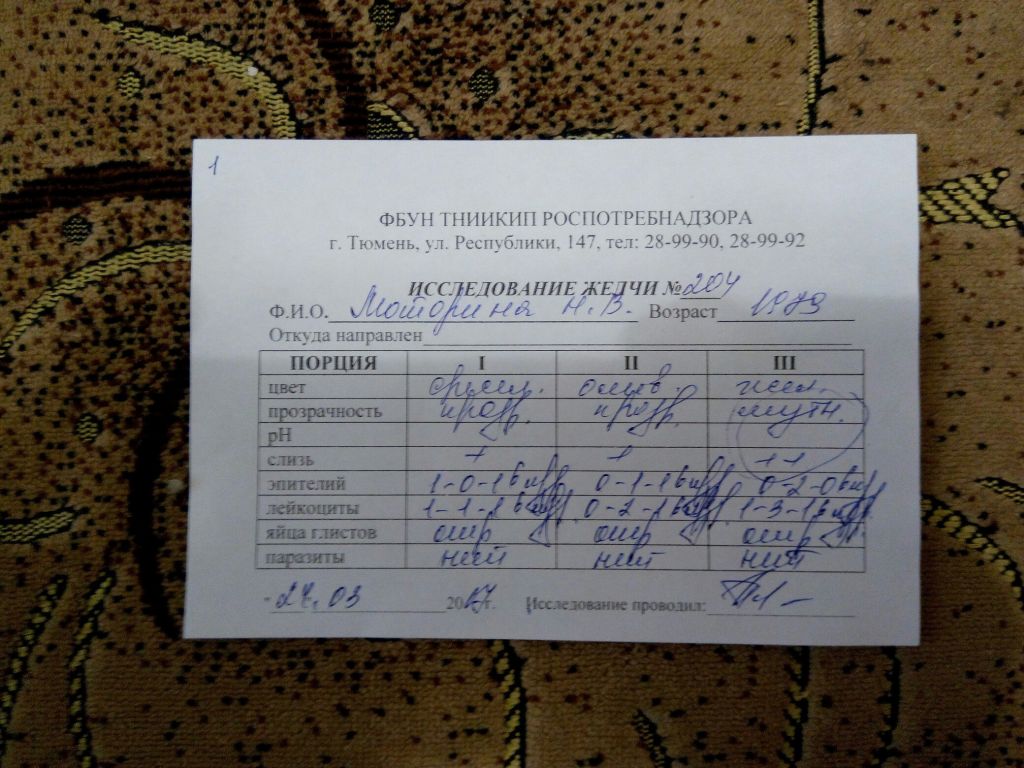 1
ФБУН ТНИИКИП РОСПОТРЕБНАДЗОРА
г. Тюмень, ул. Республики, 147, тел: 28-99-90, 28-99-92
ИССЛЕДОВАНИЕ ЖЕЛЧИ № 204
Ф.И.О. Моторина Н.В. Возраст 1979
Откуда направлен
ПОРЦИЯ I II III
цвет св.жел. олив. жел.
прозрачность прозр. прозр. мутн.
pH
слизь + + ++
эпителий 1-0-1 в п/зр 0-1-1 в п/зр 0-2-0 в п/зр
лейкоциты 1-1-1 в п/зр 0-2-1 в п/зр 1-3-1 в п/зр
яйца глистов отр отр отр
паразиты нет нет нет
03 2017г. Исследование проводил: